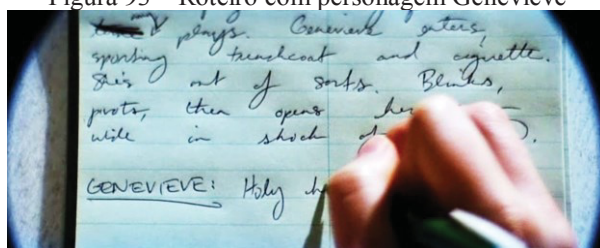 Figura 93 – Roteiro com personagem Genevieve
plays. Genevieve enters,
sporting trenchcoat and cigarette.
She's out of sorts. Blinks,
pivots, then opens her
wide in shock
GENEVIEVE: Holy